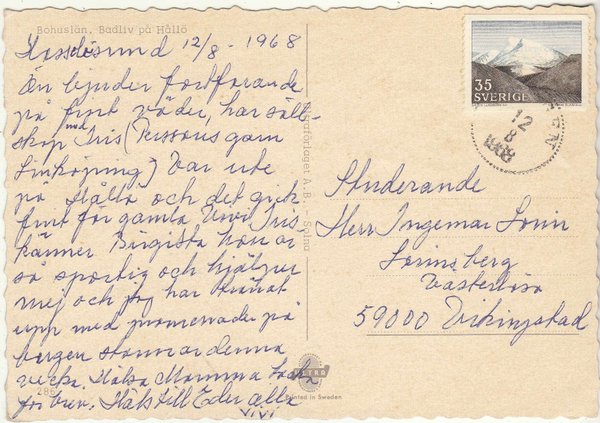 Bohuslän. Badliv på Hållö
Hasselösund 12/8 - 1968
Ön bjuder fortfarande
på fint väder, har säll-
skap med Iris (Perssons gam
Linköping) Var ute
på Hållö och det gick
fint för gamla Vivi Iris
känner Birgitta hon är
så sportig och hjälper
mej och jag har tränat
upp med promenader på
bergen stannar denna
vecka. Hälsa Mamma tack
för brev. Häls till Eder alla
Vivi
286
förlaget A. B.
Printed in Sweden
35
SVERIGE
12
8
1968
Studerande
Herr Ingemar Lorin
Lorinsberg
Västerlösa
59000 Vikingstad